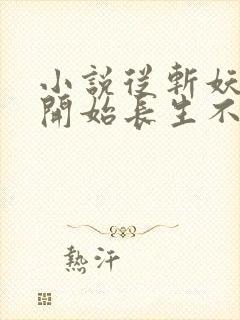 小說從斬妖
開始長生不
熱汗